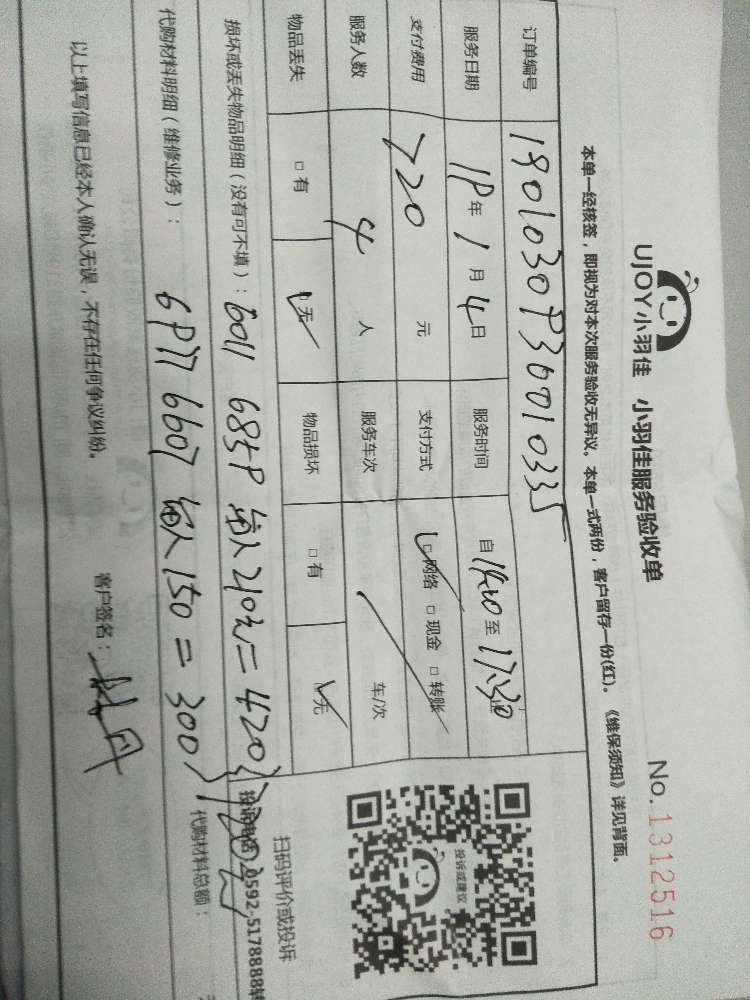 UJOY小羽佳 小羽佳服务验收单
No. 1312516
本单一经核签，即视为对本次服务验收无异议。本单一式两份，客户留存一份(红)。《维保须知》详见背面。
订单编号 19010309300 10335
服务日期 19年1月4日 服务时间 自14:00至17:30止
支付费用 720元 支付方式 □网络 □现金 □转账
服务人数 4人 服务车次 车/次
物品丢失 □有 □无 物品损坏 □有 □无
投诉或建议
扫码评价或投诉
投诉电话：0592-5178888转
损坏或丢失物品明细（没有可不填）：6011 6859 每人210元=420
720元
代购材料明细（维修业务）：6977 6607 每人150=300
代购材料总额：
以上填写信息已经本人确认无误，不存在任何争议纠纷。 客户签名：